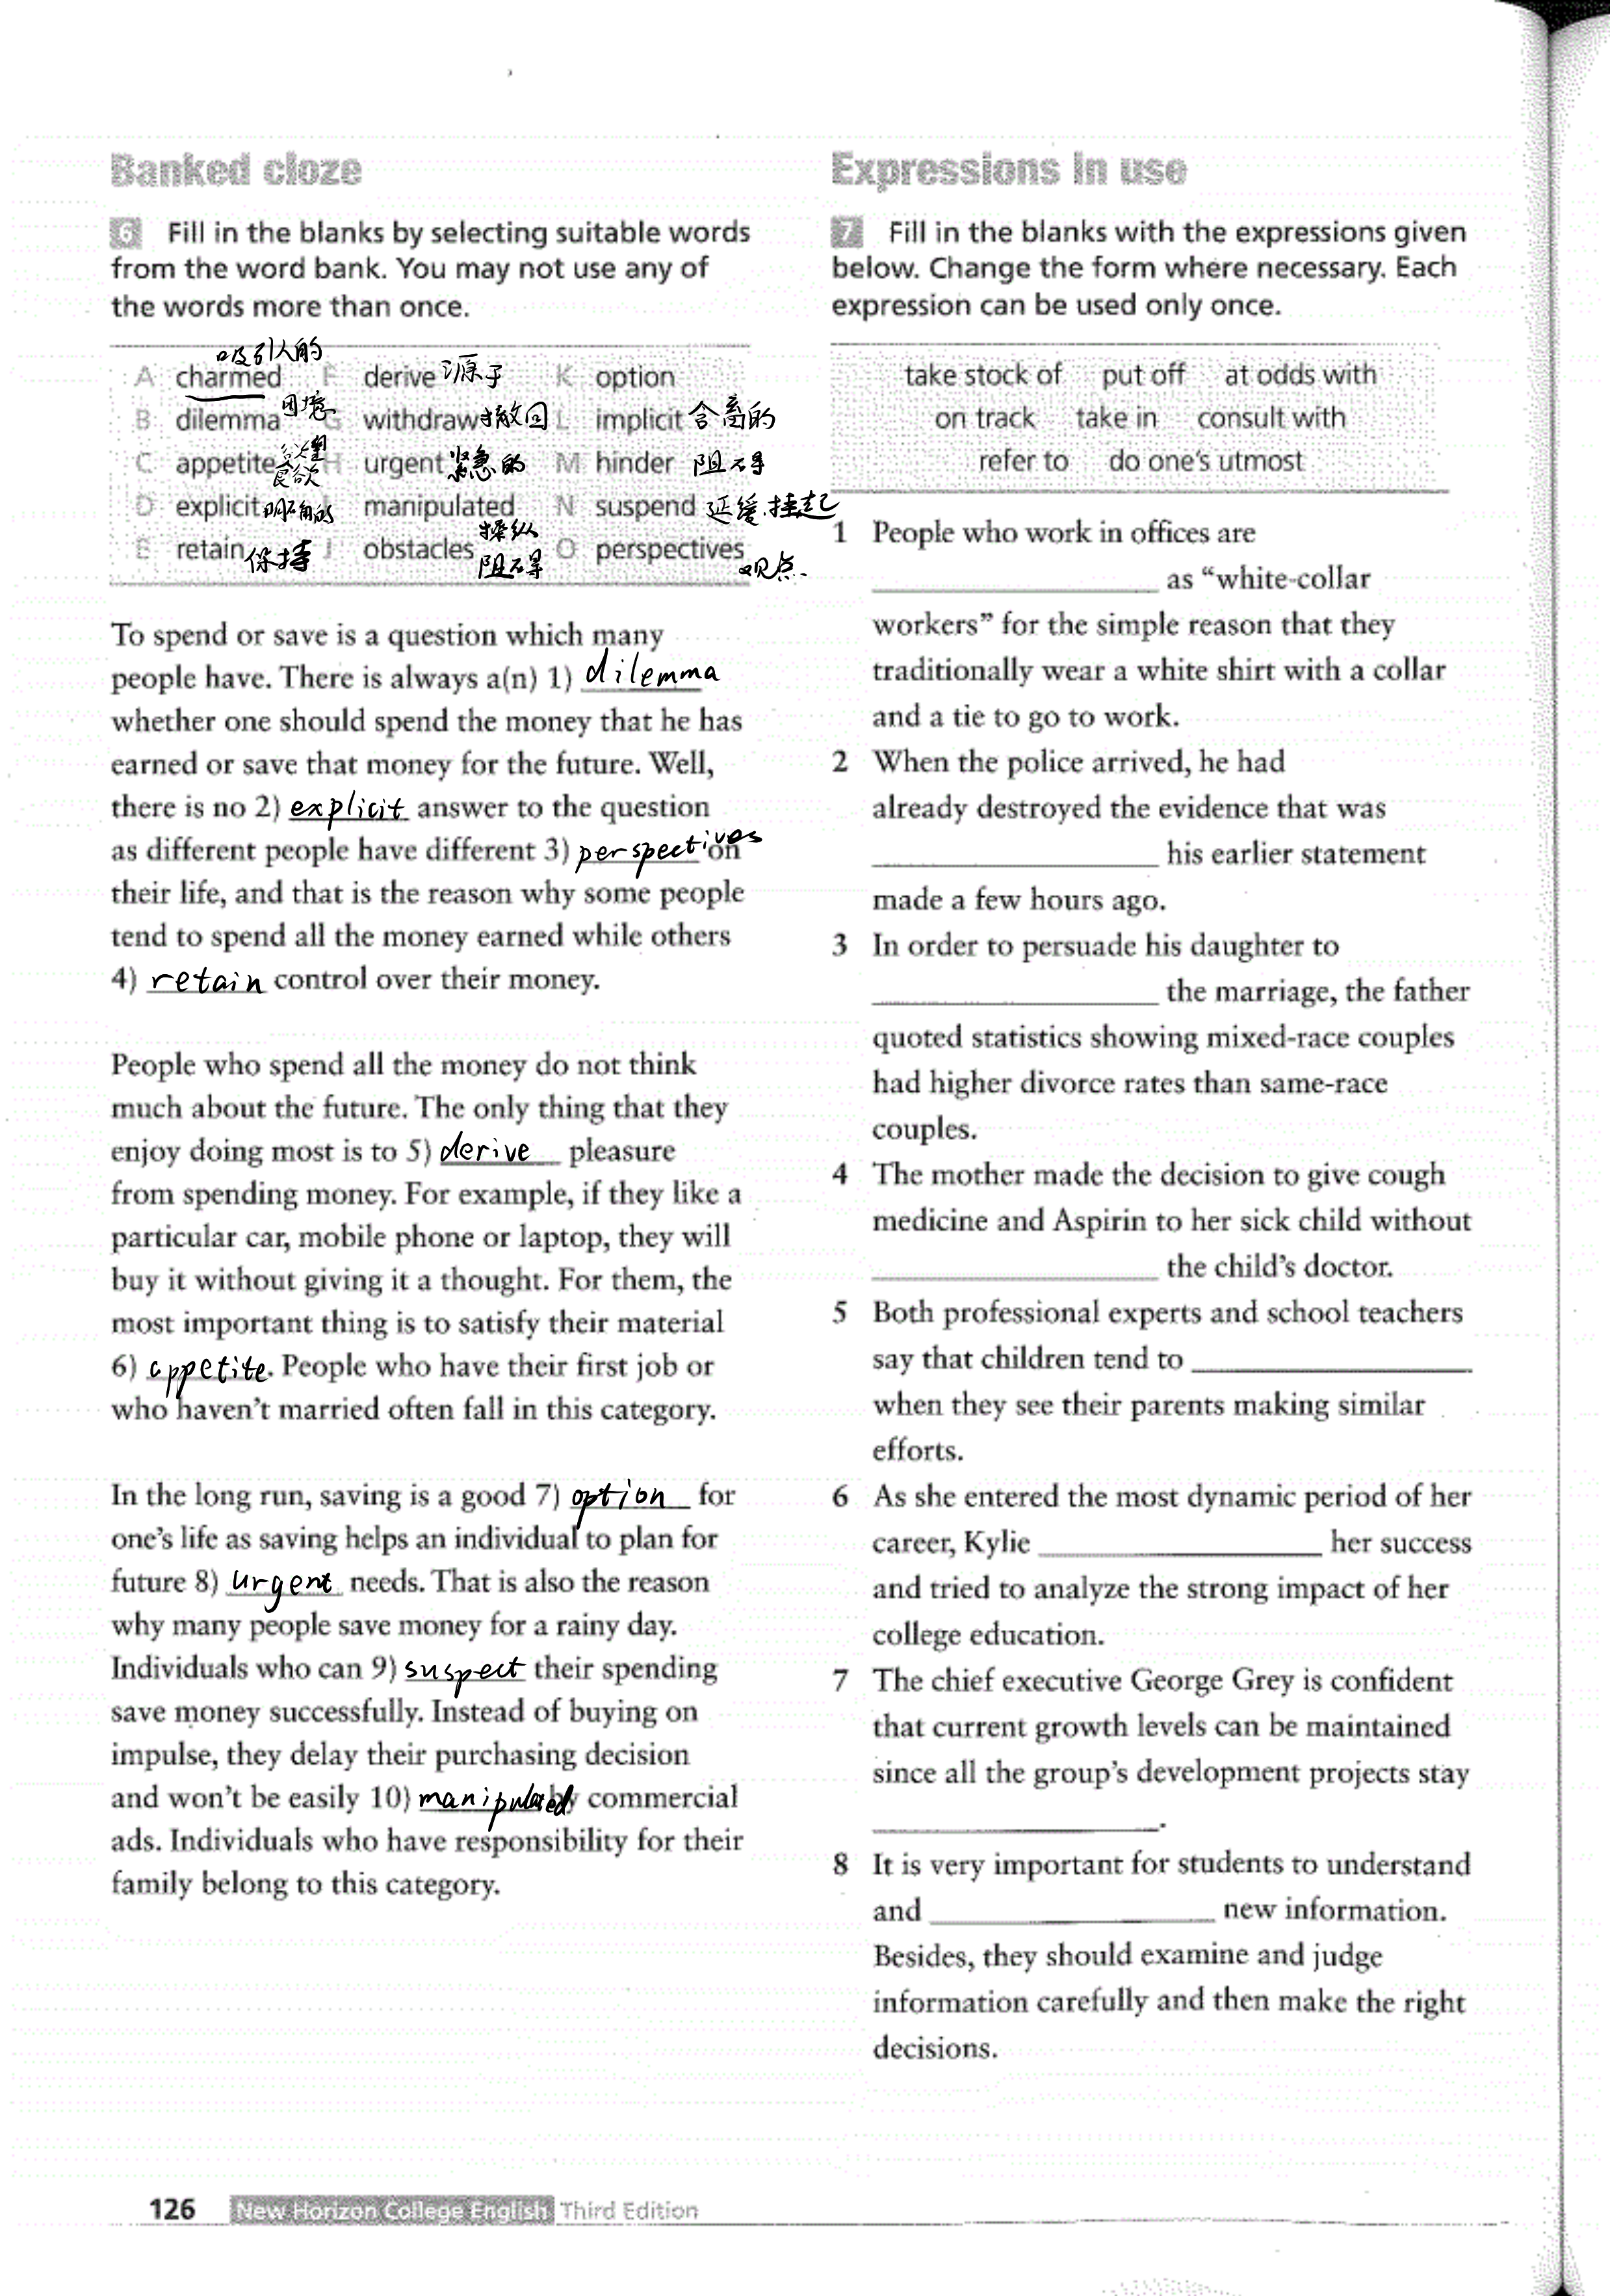 Banked cloze
6 Fill in the blanks by selecting suitable words
from the word bank. You may not use any of
the words more than once.
吸引人的
A charmed F derive 源于 K option
B dilemma 困境 G withdraw 撤回 L implicit 含蓄的
C appetite 欲望 食欲 H urgent 紧急的 M hinder 阻碍
D explicit 明确的 I manipulated 操纵 N suspend 延缓.挂起
E retain 保持 J obstacles 阻碍 O perspectives 观点.
To spend or save is a question which many
people have. There is always a(n) 1) dilemma
whether one should spend the money that he has
earned or save that money for the future. Well,
there is no 2) explicit answer to the question
as different people have different 3) perspectives on
their life, and that is the reason why some people
tend to spend all the money earned while others
4) retain control over their money.
People who spend all the money do not think
much about the future. The only thing that they
enjoy doing most is to 5) derive pleasure
from spending money. For example, if they like a
particular car, mobile phone or laptop, they will
buy it without giving it a thought. For them, the
most important thing is to satisfy their material
6) appetite. People who have their first job or
who haven't married often fall in this category.
In the long run, saving is a good 7) option for
one's life as saving helps an individual to plan for
future 8) urgent needs. That is also the reason
why many people save money for a rainy day.
Individuals who can 9) suspect their spending
save money successfully. Instead of buying on
impulse, they delay their purchasing decision
and won't be easily 10) manipulated by commercial
ads. Individuals who have responsibility for their
family belong to this category.
Expressions in use
7 Fill in the blanks with the expressions given
below. Change the form where necessary. Each
expression can be used only once.
take stock of put off at odds with
on track take in consult with
refer to do one's utmost
1 People who work in offices are
as "white-collar
workers" for the simple reason that they
traditionally wear a white shirt with a collar
and a tie to go to work.
2 When the police arrived, he had
already destroyed the evidence that was
his earlier statement
made a few hours ago.
3 In order to persuade his daughter to
the marriage, the father
quoted statistics showing mixed-race couples
had higher divorce rates than same-race
couples.
4 The mother made the decision to give cough
medicine and Aspirin to her sick child without
the child's doctor.
5 Both professional experts and school teachers
say that children tend to
when they see their parents making similar
efforts.
6 As she entered the most dynamic period of her
career, Kylie her success
and tried to analyze the strong impact of her
college education.
7 The chief executive George Grey is confident
that current growth levels can be maintained
since all the group's development projects stay
.
8 It is very important for students to understand
and new information.
Besides, they should examine and judge
information carefully and then make the right
decisions.
126 New Horizon College English Third Edition